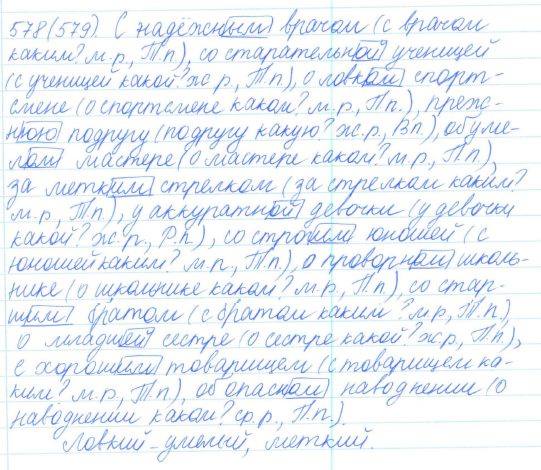 578(579). С надёжным врачом (с врачом
каким? м.р., Т.п.), со старательной ученицей
(с ученицей какой? ж.р., Т.п.), о ловком спорт-
смене (о спортсмене каком? м.р., П.п.), преж-
нюю подругу (подругу какую? ж.р., В.п.), об уме-
лом мастере (о мастере каком? м.р., П.п.),
за метким стрелком (за стрелком каким?
м.р., Т.п.), у аккуратной девочки (у девочки
какой? ж.р., Р.п.), со строгим юношей (с
юношей каким? м.р., Т.п.), о проворном школь-
нике (о школьнике каком? м.р., П.п.), со стар-
шим братом (с братом каким? м.р., Т.п.),
о младшей сестре (о сестре какой? ж.р., П.п.),
с хорошим товарищем (с товарищем ка-
ким? м.р., Т.п.), об опасном наводнении (о
наводнении каком? ср.р., П.п.).
Ловкий - умелый, меткий.